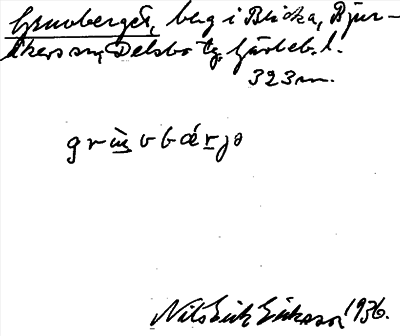 Gruvberget, berg i Blicka, Bjur-
åkers sn, Delsbo tg. Gävleb. l.
323 m.
grùvbárjə
Nils Erik Eriksson 1936.